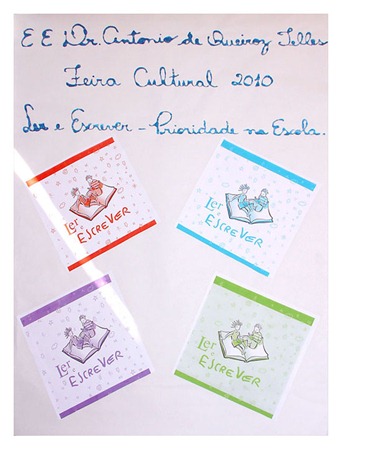 E E Dr. Antonio de Queiroz Telles
Feira Cultural 2010
Ler e Escrever - Prioridade na Escola.
Ler
E
ESCREVER
Ler
E
ESCREVER
Ler
E
ESCREVER
Ler
E
ESCREVER